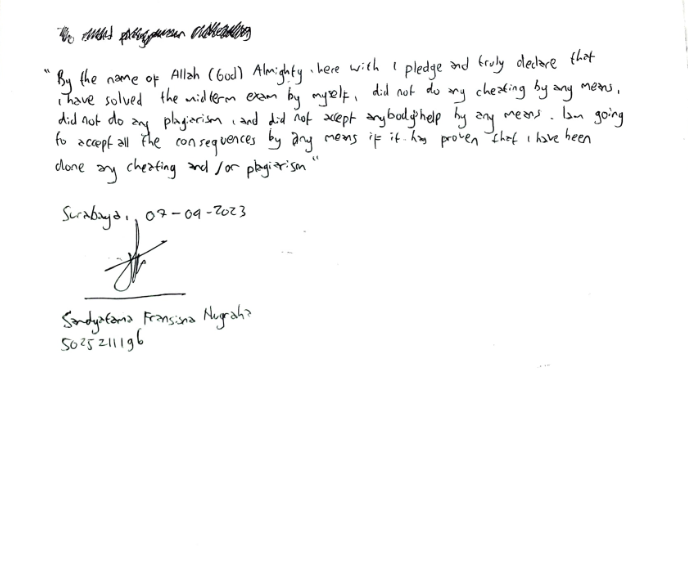 "By the name of Allah (God) Almighty, here with I pledge and truly declare that
i have solved the midterm exam by myself, did not do any cheating by any means,
did not do any plagiarism, and did not accept anybody's help by any means. I am going
to accept all the consequences by any means if it has proven that i have been
done any cheating and/or plagiarism"
Surabaya, 07-09-2023
Sandyatama Fransisna Nugraha
5025211196